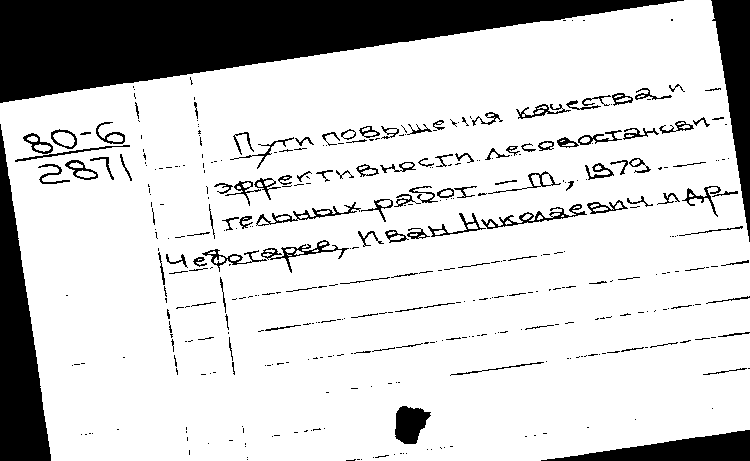 80-6
2871
Пути повышения качества и
эффективности лесовостанови-
тельных работ. - М, 1979.
Чеботарев, Иван Николаевич и др.